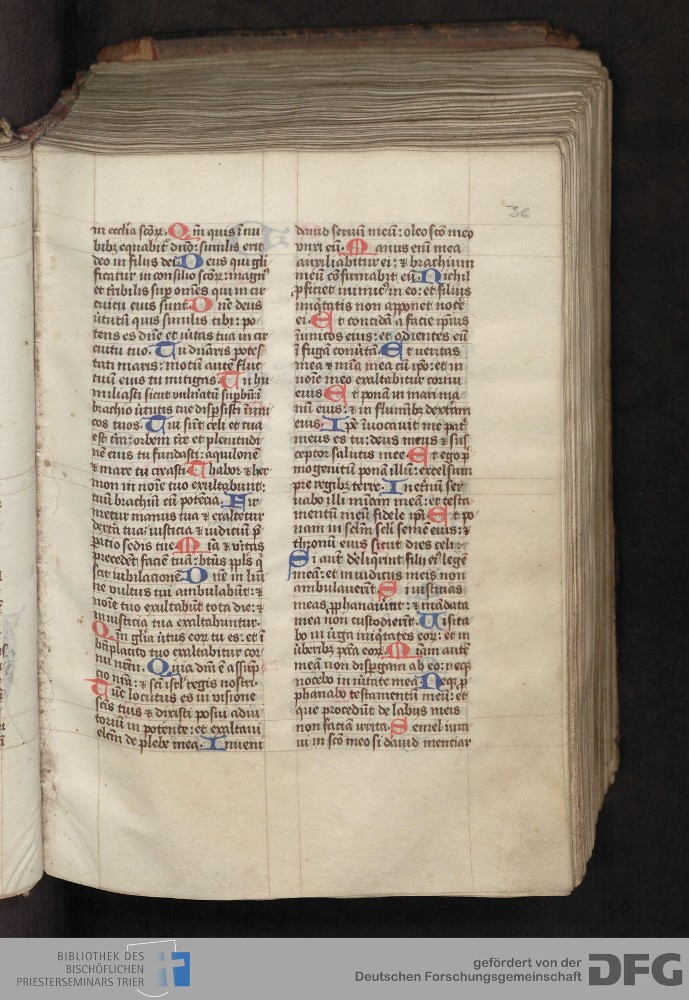 36
in eccl'ia sc̄oꝝ. Qm̄ quis ī nu
bibꝫ equabit' dn̄o: similis erit
deo in filiis dei. Deus qui gl̓i
ficatur in consilio sc̄oꝝ: magn'
et t̄ribilis sup om̄es qui in cir
cuitu eius sunt. Dn̄e deus
v̓tutū quis similis tibi: po
tens es dn̄e et v̓itas tua in cir
cuitu tuo. Tu dn̄aris potes
tati maris: motū autē fluc
tuū eius tu mitigas. Tu hu
miliasti sicut vuln̓atū suꝑbū: ī
brachio v̓tutis tue disꝑsisti inimi
cos tuos. Tui sūt celi et tua
est tr̄a: orbem tr̄e et plenitudi
nē eius tu fundasti: aquilonē
⁊ mare tu creasti. Thabor ⁊ her
mon in noīe tuo exultabunt:
tuū brachiū cū potēcia. Fir
metur manus tua ⁊ exaltetur
dext̓a tua: iusticia ⁊ iudiciū p̄
ꝑatio sedis tue. Mīa ⁊ v̓itas
precedēt faciē tuā: bt̄us ppl̓s q̄
scit iubilacionē. Dn̄e in lūi
ne vultus tui ambulabūt: ⁊
noīe tuo exultabūt tota die: ⁊
in iusticia tua exaltabuntur.
Qm̄ gl̓ia v̓tutis eoꝝ tu es: et ī
bn̄placito tuo exaltabitur cor
nu nr̄m. Quia dn̄i ē assūp
tio nr̄a: ⁊ sc̄i isrl̓ regis nostri.
Tūc locutus es in visione
sc̄is tuis ⁊ dixisti posui adiu
torium in potente: et exaltaui
elc̄m de plebe mea. Inueni
dauid seruū meū: oleo sc̄o meo
vnxi eū. Manus eni mea
auxiliabitur ei: ⁊ brachium
meū cōfirmabit eū. Nichil
ꝓficiet inimic' in eo: et filius
iniq̄tatis non apponet nocē
ei. Et concidā a facie ip̄ius
inimicos eius: et odientes eū
ī fugā conūtā. Et veritas
mea ⁊ mīa mea cū ip̄o: et in
noīe meo exaltabitur cornu
eius. Et ponā in mari ma
nū eius: ⁊ in fluminbꝫ dext̓am
eius. Ipē inuocauit me pat̓
meus es tu: deus meus ⁊ sus
ceptor salutis mee. Et ego p̄
mogenitū ponā illū: excelsum
pre regibꝫ terre. In et̓nū ser
uabo illi mīam meā: et testa
mentū meū fidele ip̄i. Et po
nam in sc̄lm sc̄li semē eius: ⁊
thronū eius sicut dies celi.
Si aut̄ deliq̓rint filii ei' legē
meā: et in iudiciis meis non
ambulauerīt. Si iusticias
meas ꝓphanau̓int: ⁊ mādata
mea non custodierīt. Uisita
bo in v̓ga iniq̄tates eoꝝ: et in
v̓beribꝫ pc̄ca eoꝝ. Mīam autē
meā non disꝑgam ab eo: neqꝫ
nocebo in v̓itate mea. Neqꝫ ꝓ
phanabo testamentū meū: et
que procedūt de labiis meis
non faciā irrita. Semel iura
ui in sc̄o meo si dauid mentiar
BIBLIOTHEK DES
BISCHÖFLICHEN
PRIESTERSEMINARS TRIER
gefördert von der
Deutschen Forschungsgemeinschaft
DFG